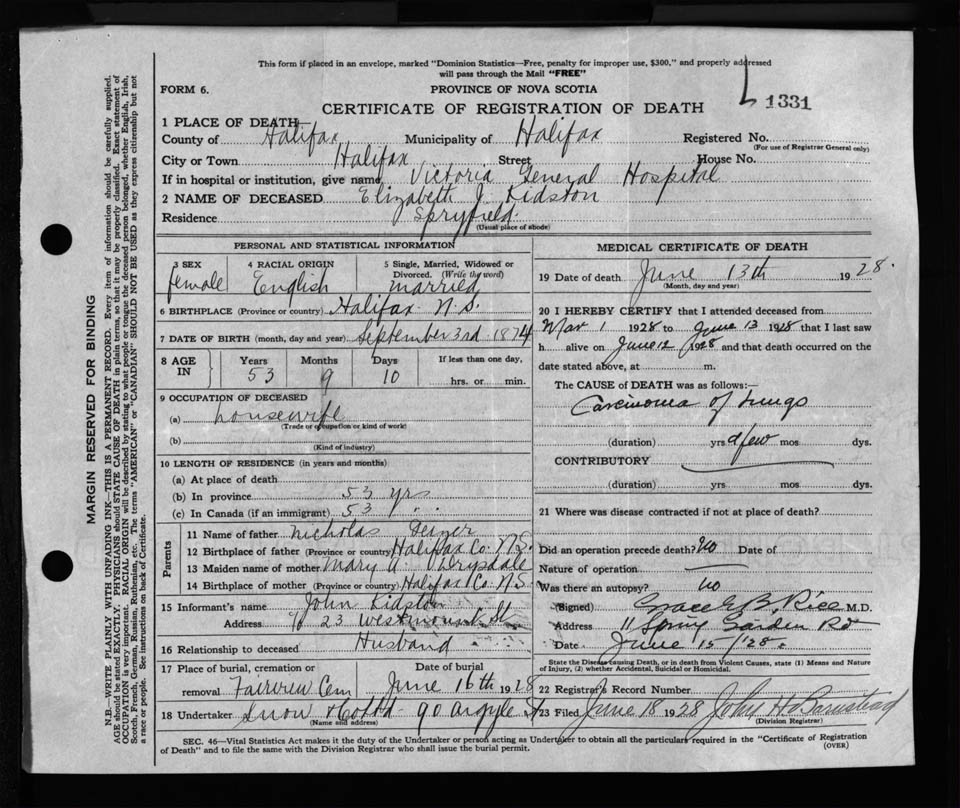 This form if placed in an envelope, marked "Dominion Statistics—Free, penalty for improper use, $300," and properly addressed
will pass through the Mail "FREE"
FORM 6.
PROVINCE OF NOVA SCOTIA
CERTIFICATE OF REGISTRATION OF DEATH
1331
1 PLACE OF DEATH
County of Halifax Municipality of Halifax Registered No.
(For use of Registrar General only)
City or Town Halifax Street House No.
If in hospital or institution, give name Victoria General Hospital
2 NAME OF DECEASED Elizabeth J. Kidston
Residence Spryfield.
(Usual place of abode)
PERSONAL AND STATISTICAL INFORMATION
3 SEX 4 RACIAL ORIGIN 5 Single, Married, Widowed or
Divorced. (Write the word)
female English married
6 BIRTHPLACE (Province or country) Halifax N.S.
7 DATE OF BIRTH (month, day and year) September 3rd 1874
8 AGE IN Years Months Days If less than one day,
53 9 10 hrs. or min.
9 OCCUPATION OF DECEASED
(a) housewife
(Trade or occupation or kind of work)
(b)
(Kind of industry)
10 LENGTH OF RESIDENCE (in years and months)
(a) At place of death
(b) In province 53 yrs
(c) In Canada (if an immigrant) 53 " "
Parents
11 Name of father Nicholas
12 Birthplace of father (Province or country) Halifax Co. N.S.
13 Maiden name of mother Mary A
14 Birthplace of mother (Province or country) Halifax Co. N.S
15 Informant's name John Kidston
Address 23 Westmount St
16 Relationship to deceased Husband
17 Place of burial, cremation or Date of burial
removal Fairview Cem June 16th 1928
18 Undertaker Snow 90 Argyle St
(Name and address)
MEDICAL CERTIFICATE OF DEATH
19 Date of death June 13th 1928.
(Month, day and year)
20 I HEREBY CERTIFY that I attended deceased from
Mar 1 1928 to June 13 1928 that I last saw
h alive on June 12 1928 and that death occurred on the
date stated above, at m.
The CAUSE of DEATH was as follows:—
Carcinoma of Lungs
(duration) yrs a few mos dys.
CONTRIBUTORY
(duration) yrs. mos. dys.
21 Where was disease contracted if not at place of death?
Did an operation precede death? No Date of
Nature of operation
Was there an autopsy? no
(Signed) Grace E. B. Rice M.D.
Address 11 Spring Garden Rd
Date June 15/28.
State the Disease causing Death, or in death from Violent Causes, state (1) Means and Nature
of Injury, (2) whether Accidental, Suicidal or Homicidal.
22 Registrar's Record Number
23 Filed June 18 1928 John H. Barnstead
(Division Registrar)
SEC. 46—Vital Statistics Act makes it the duty of the Undertaker or person acting as Undertaker to obtain all the particulars required in the "Certificate of Registration
of Death" and to file the same with the Division Registrar who shall issue the burial permit.
(OVER)
MARGIN RESERVED FOR BINDING
N.B.—WRITE PLAINLY WITH UNFADING INK—THIS IS A PERMANENT RECORD. Every item of information should be carefully supplied.
AGE should be stated EXACTLY. PHYSICIANS should STATE CAUSE OF DEATH in plain terms, so that it may be properly classified. Exact statement of
OCCUPATION is very important. RACIAL ORIGIN will be described by stating to what people or tongue the deceased person belonged, whether English, Irish,
Scotch, French, German, Russian, Ruthenian, etc. The terms "AMERICAN" or "CANADIAN" SHOULD NOT BE USED as they express citizenship but not
a race or people. See instructions on back of Certificate.